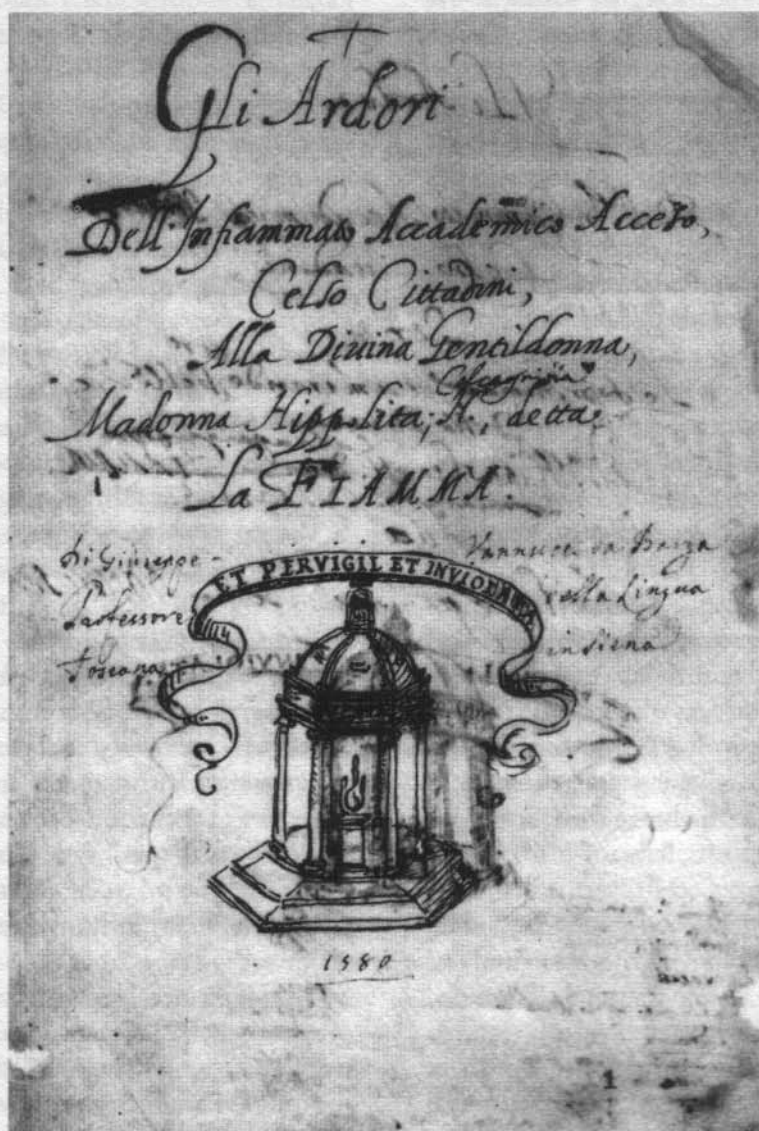 Gli Ardori
Dell'Infiammato Accademico Acceso,
Celso Cittadini,
Alla Diuina Gentildonna,
Madonna Hippolita, A., detta
La FIAMMA.
Di Giuseppe Vannucci da Barga
Professore della Lingua
Toscana in Siena
ET PERVIGIL ET INVIOLATA
1580
1